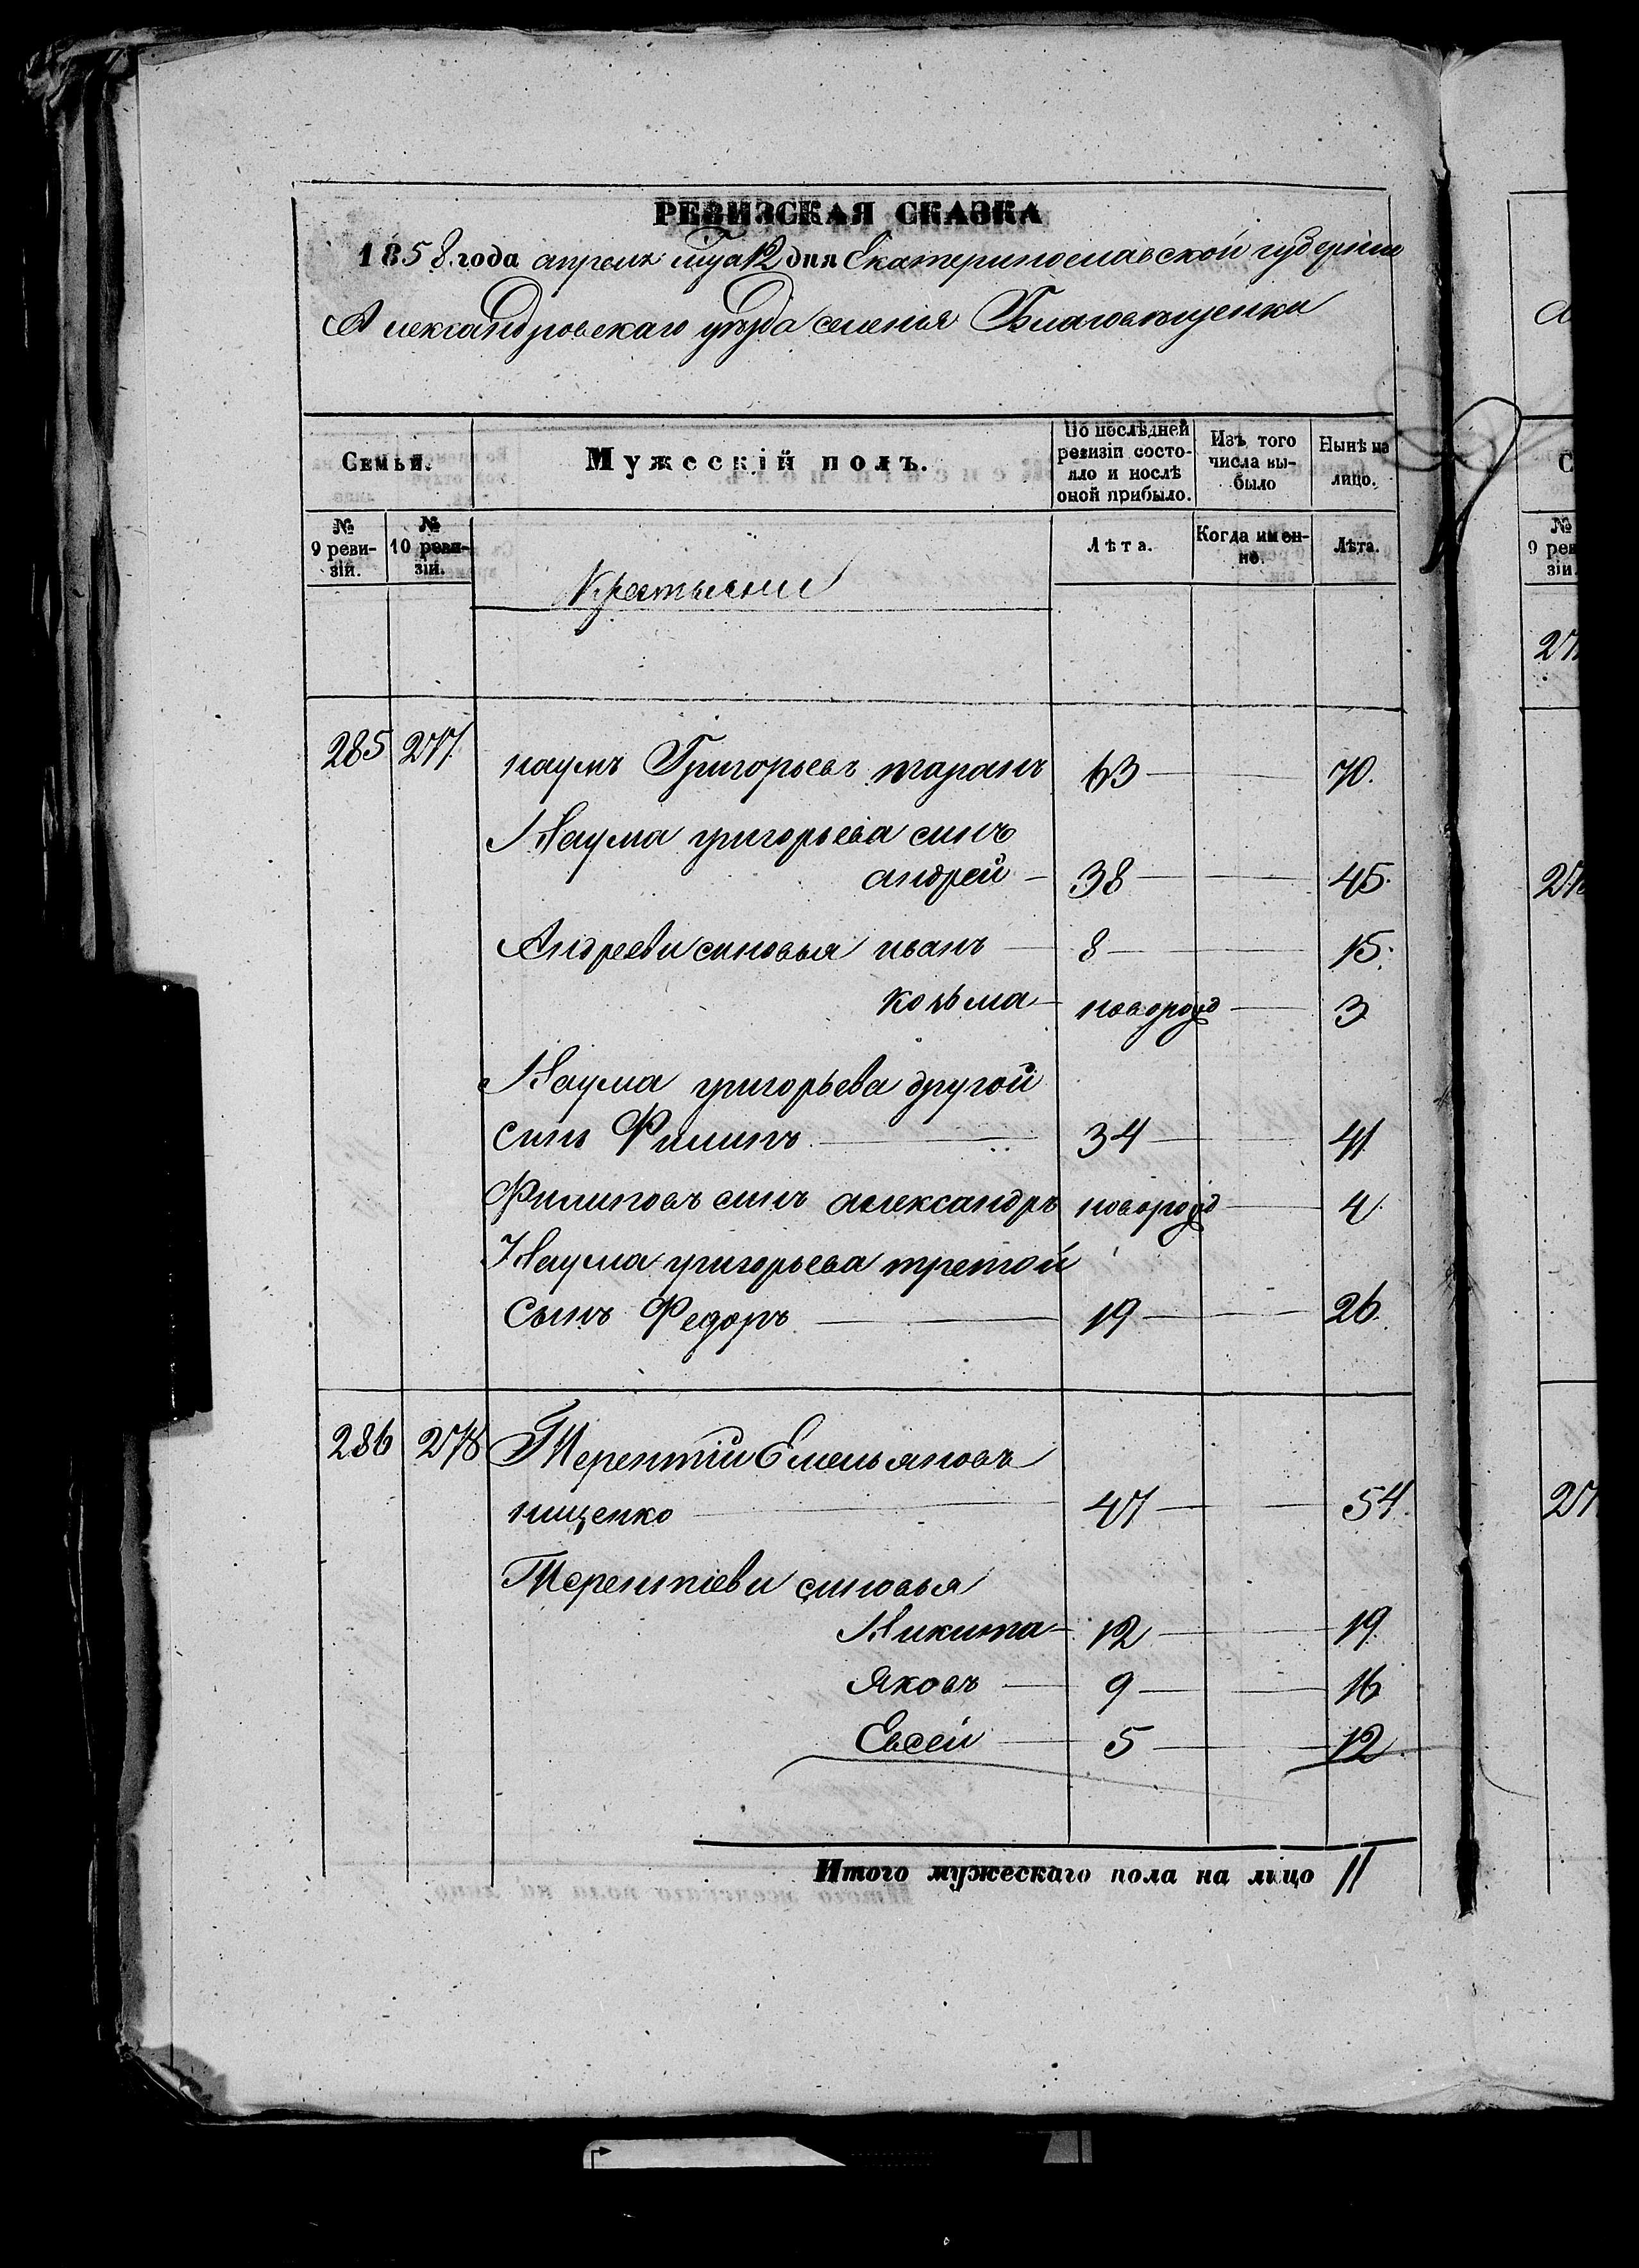 РЕВИЗСКАЯ СКАЗКА
1858 года апреля мца 12 дня Екатеринославской губернии
Александровскаго уѣзда селенья Благовѣщенки
Семьи.
Мужескій полъ.
По послѣдней ревизіи состояло и послѣ оной прибыло.
Изъ того числа выбыло
Нынѣ на лицо.
№ 9 ревизіи.
№ 10 ревизіи.
Крестьяни
Лѣта.
Когда именно.
Лѣта.
285 277 наумъ Григорьевъ таранъ 63 70.
Наума григорьева синъ
андрей 38 45.
Андрееви синовья иванъ 8 15.
козьма новорожд 3
Наума григорьева другой
синъ Филипъ 34 41
Филиповъ синъ александръ новорожд 4
Наума григорьева третой
сынъ Федоръ 19 26.
286 278 Терентій Емельяновъ
нищенко 47 54.
Терентіеви синовья
Никита 12 19.
Яковъ 9 16
Евсей 5 12.
Итого мужескаго пола на лицо 11
9 реви
зіи.